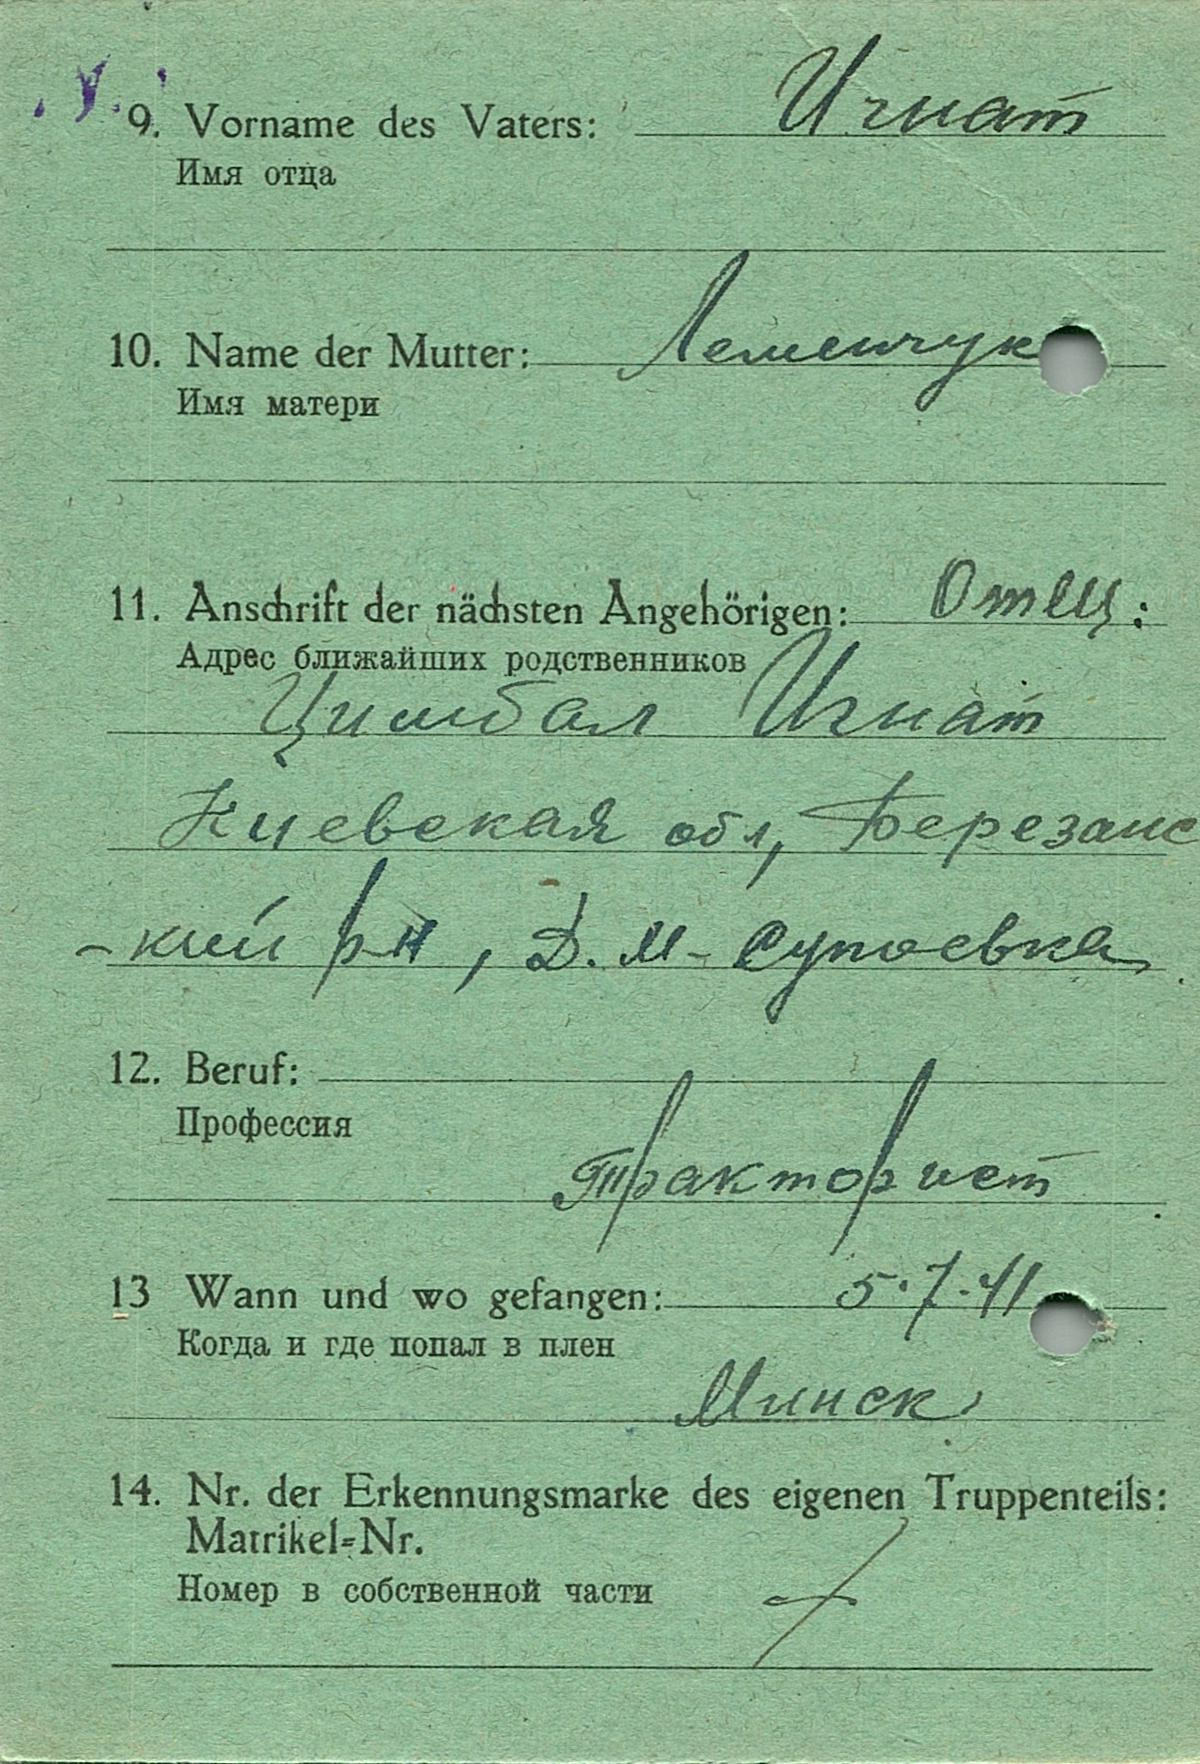 9. Vorname des Vaters: Игнат
Имя отца
10. Name der Mutter: Леменчук
Имя матери
11. Anschrift der nächsten Angehörigen: Отец:
Адрес ближайших родственников
Цимбал Игнат
Киевская обл, Березанс
-кий р-н, Д. М-Супоевка
12. Beruf:
Профессия
Тракторист
13 Wann und wo gefangen: 5.7.41
Когда и где попал в плен
Минск
14. Nr. der Erkennungsmarke des eigenen Truppenteils:
Matrikel=Nr.
Номер в собственной части